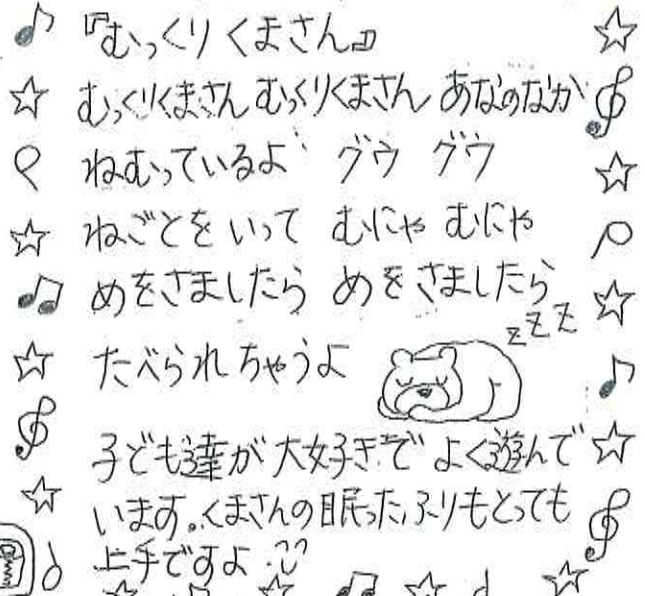 『むっくりくまさん』
むっくりくまさん むっくりくまさん あなのなか
ねむっているよ グウ グウ
ねごとを いって むにゃ むにゃ
めをさましたら めをさましたら
たべられちゃうよ
zzz
子ども達が大好きで よく遊んで
います。くまさんの眠ったふりもとっても
上手ですよ